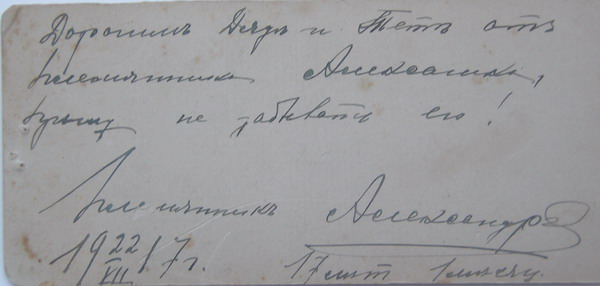 Дорогимъ Дядѣ и Тетѣ отъ
племянника Александра,
прошу не забывать его!
племянникъ Александръ
19 22/VII 17 г. 17 лѣтъ